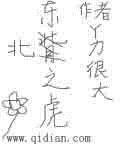 作者
丫力很大
东北之虎
www.qidian.com